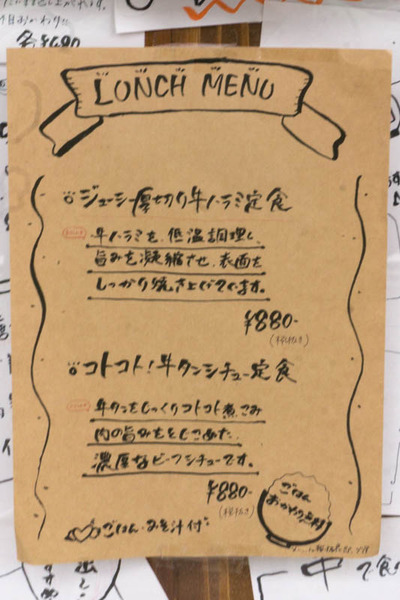 各¥680
LUNCH MENU
ジューシー厚切り牛ハラミ定食
牛ハラミを、低温調理し、
旨みを凝縮させ、表面を
しっかり焼き上げています。
¥880-
(税抜き)
コトコト!牛タンシチュー定食
牛タンをじっくりコトコト煮こみ
肉の旨みをとじこめた、
濃厚なビーフシチューです。
¥880-
(税抜き)
ごはん・みそ汁付
ごはん
おかわり無料